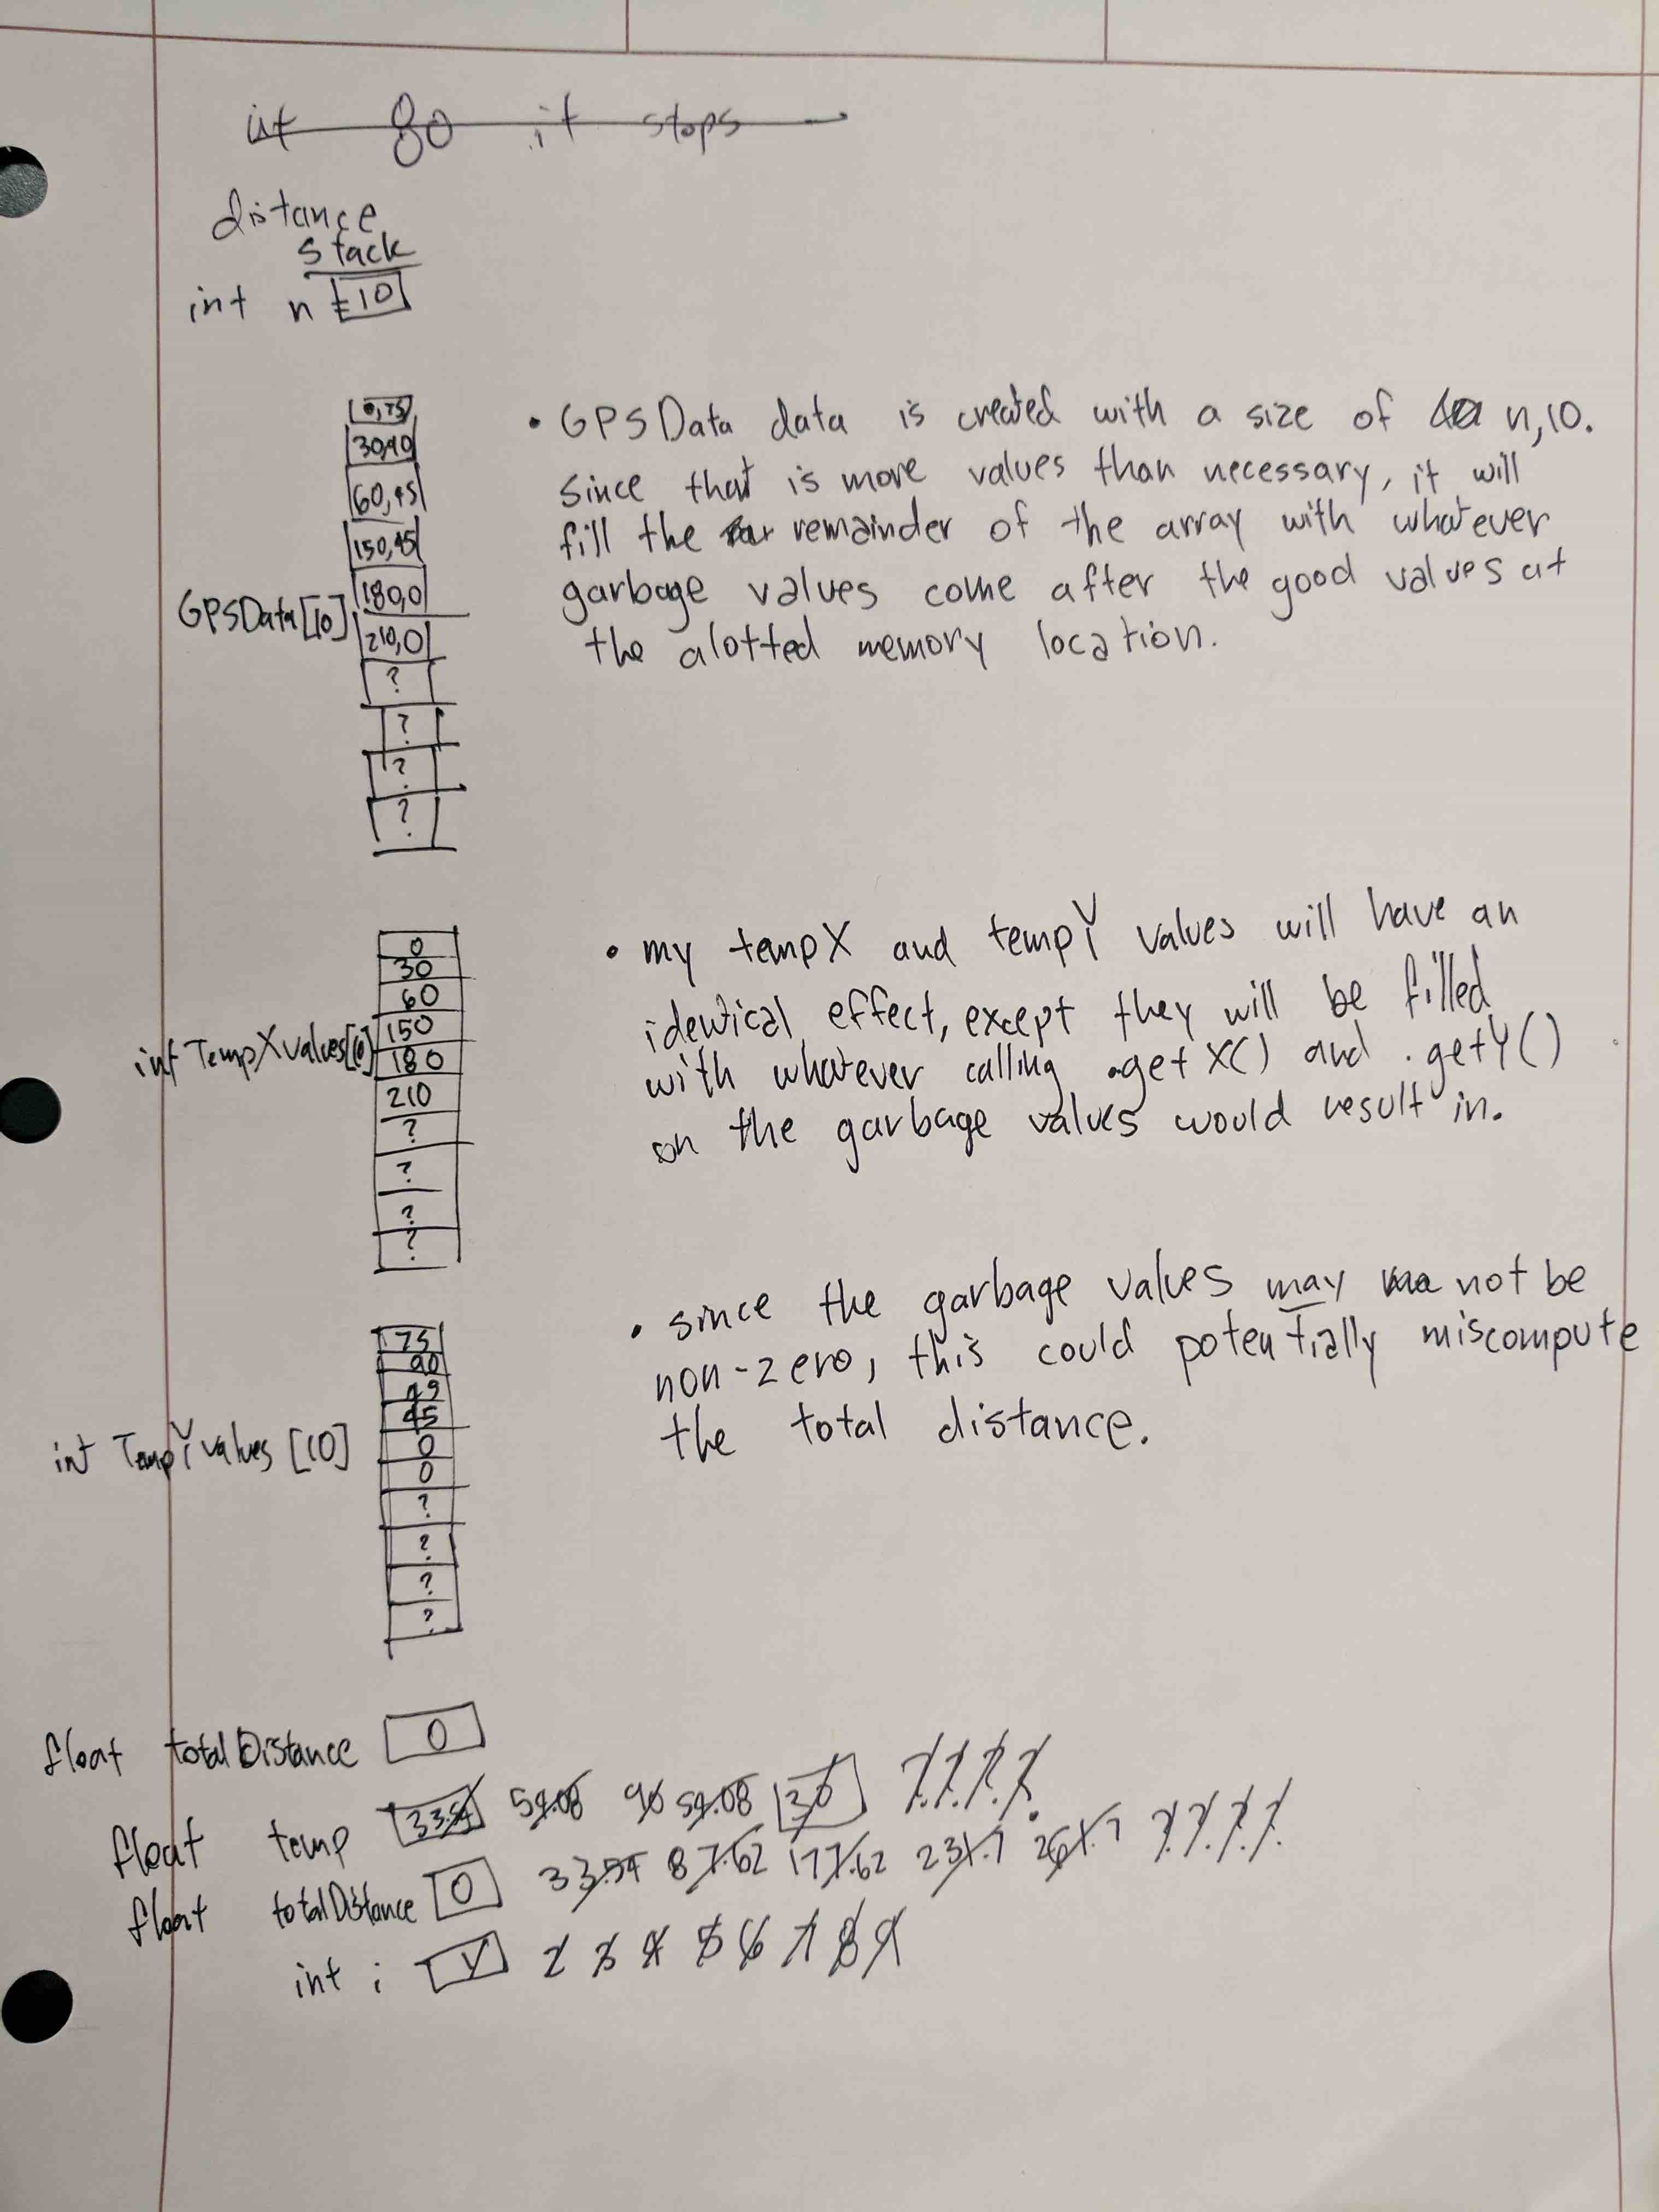 it 80 it stops
distance
stack
int n = 10
0,75
30,90
60,45
150,45
180,0
GPSData[10]
210,0
?
?
?
?
• GPSData data is created with a size of n,10.
Since that is more values than necessary, it will
fill the remainder of the array with whatever
garbage values come after the good values at
the alotted memory location.
0
30
60
150
int TempXvalues[10]
180
210
?
?
?
?
• my tempX and tempY values will have an
identical effect, except they will be filled
with whatever calling .getX() and .getY()
on the garbage values would result in.
• since the garbage values may not be
non-zero, this could potentially miscompute
the total distance.
75
90
45
45
int TempYvalues [10]
0
0
?
?
?
?
float totalDistance 0
float temp 33.54 54.08 90 54.08 30 ? ? ? ?
float totalDistance 0 33.54 87.62 177.62 231.7 261.7 ? ? ? ?
int i 1 2 3 4 5 6 7 8 9